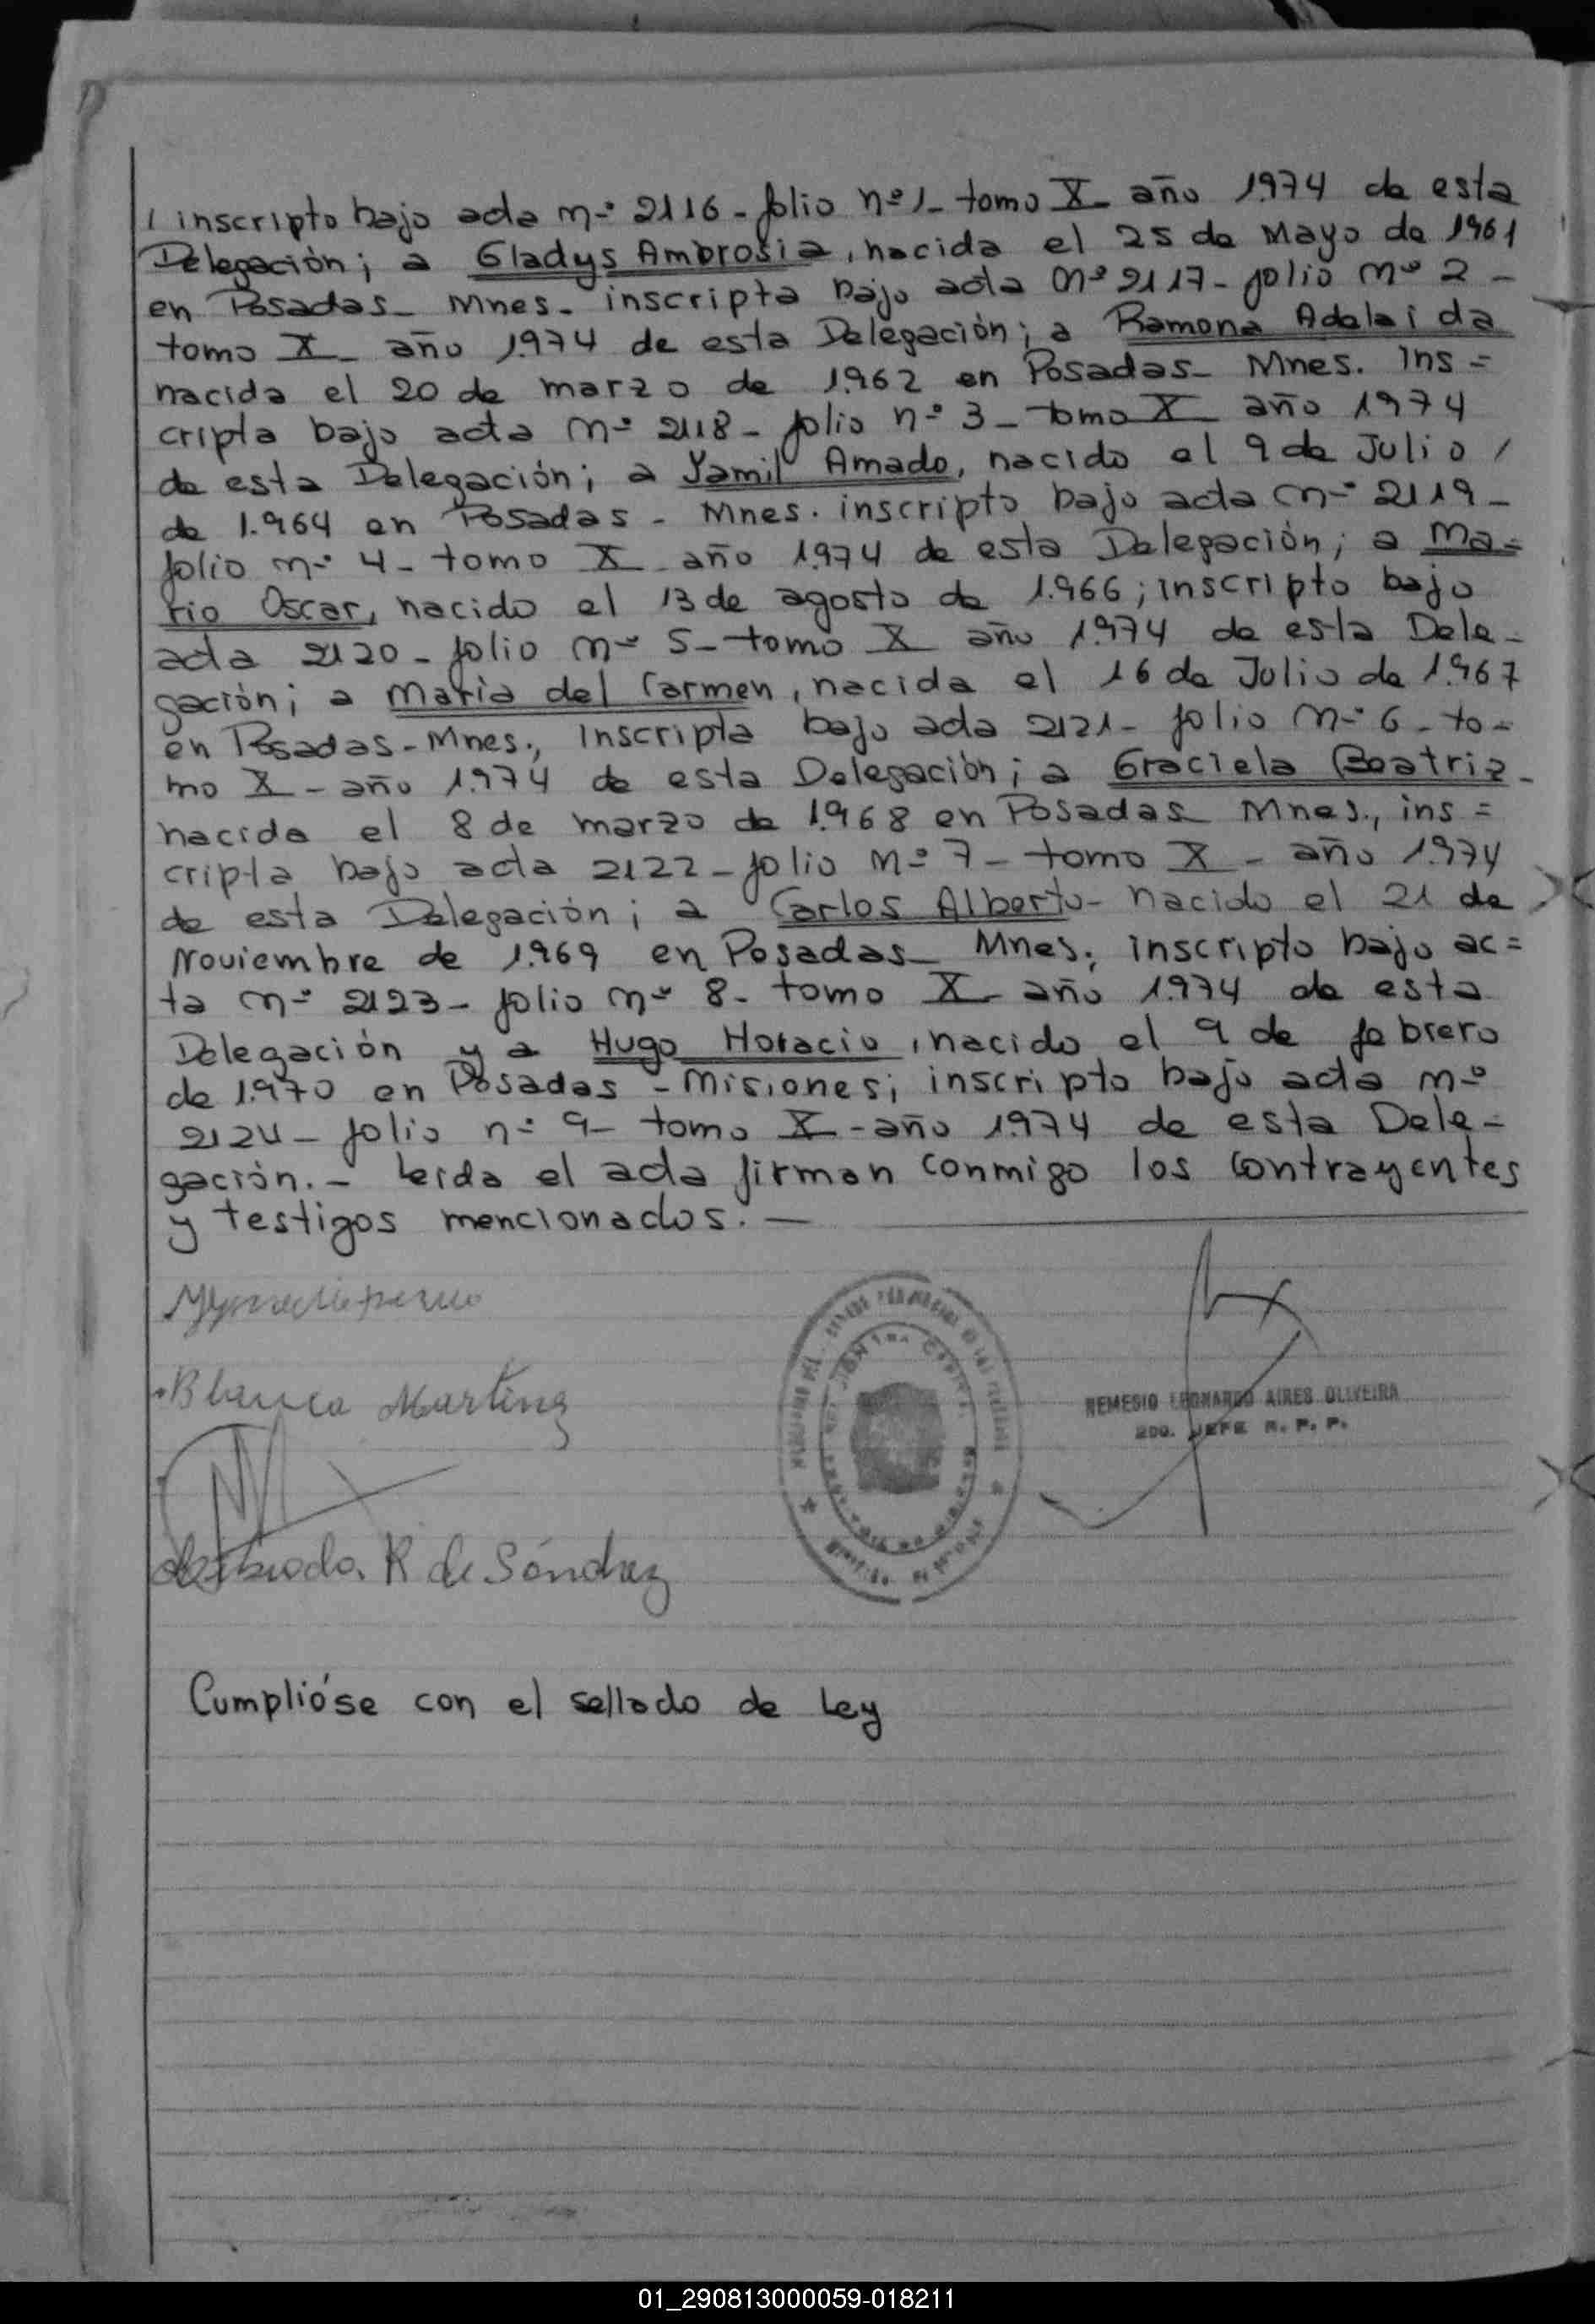 / inscripto bajo acta n-° 2116 - folio n° 1 - tomo X - año 1.974 de esta
Delegación; a Gladys Ambrosia, nacida el 25 de Mayo de 1961
en Posadas - Mnes. inscripta bajo acta n° 2117 - folio n° 2 -
tomo X - año 1.974 de esta Delegación; a Ramona Adelaida
nacida el 20 de marzo de 1.962 en Posadas - Mnes. Ins =
cripta bajo acta n-° 2118 - folio n-° 3 - tomo X año 1974
de esta Delegación; a Yamil Amado, nacido el 9 de Julio /
de 1.964 en Posadas - Mnes. inscripto bajo acta n-° 2119 -
folio n-° 4 - tomo X - año 1.974 de esta Delegación; a Ma=
rio Oscar, nacido el 13 de agosto de 1.966; inscripto bajo
acta 2120 - folio n-° 5 - tomo X año 1.974 de esta Dele -
gación; a María del Carmen, nacida el 16 de Julio de 1.967
en Posadas - Mnes., Inscripta bajo acta 2121 - folio n-° 6 - to -
mo X - año 1.974 de esta Delegación; a Graciela Beatriz -
nacida el 8 de marzo de 1.968 en Posadas - Mnes., ins =
cripta bajo acta 2122 - folio n-° 7 - tomo X - año 1.974
de esta Delegación; a Carlos Alberto - nacido el 21 de
Noviembre de 1.969 en Posadas - Mnes. inscripto bajo ac =
ta n-° 2123 - folio n-° 8 - tomo X - año 1.974 de esta
Delegación y a Hugo Horacio, nacido el 9 de febrero
de 1.970 en Posadas - Misiones; inscripto bajo acta n-°
2124 - folio n-° 9 - tomo X - año 1.974 de esta Dele -
gación. - Leída el acta firman conmigo los contrayentes
y testigos mencionados. -
Blanca Martinez
REMESIO LEONARDO AIRES OLIVEIRA
2DO. JEFE R. P. P.
R de Sánchez
Cumplióse con el sellado de Ley
01_290813000059-018211